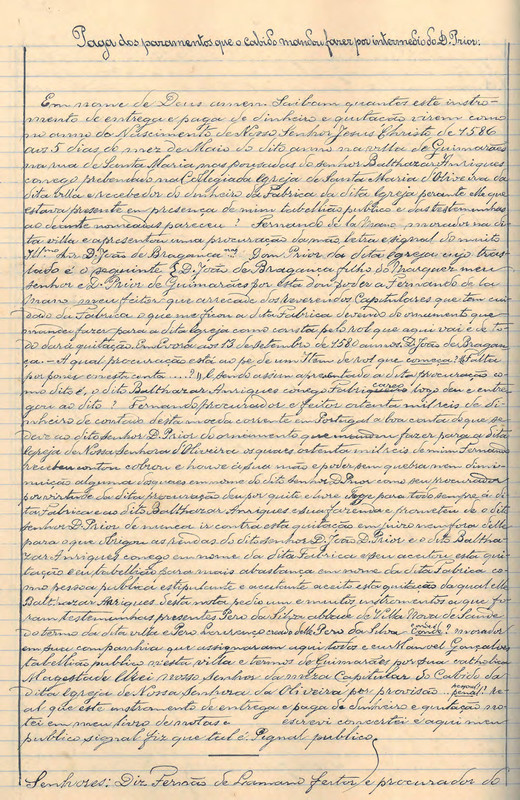 Paga dos paramentos que o Cabido mandou fazer por intermedio do D. Prior.
Em nome de Deus amem Saibam quantos este instru-
mento de entrega e paga de dinheiro e quitação virem com
no anno do Nascimento de Nosso Senhor Jesus Christo de 1586
aos 5 dias do mez de Maio do dito anno na villa de Guimarães
na rua de Santa Maria nas pousadas do senhor Balthazar Anriques
conego prebendado na Collegiada Igreja de Santa Maria d'Oliveira da
dita villa e recebedor do dinheiro da Fabrica da dita Igreja perante elle que
estava presente em presença de mim tabellião publico e das testemunhas
ao deante nomeadas pareceu? Fernando de la Mano morador na di-
ta villa e apresentou uma procuração da mão letra e signal do muito
Ill.mo Snr. D. João de Bragança Dom Prior da dita Igreja cujo tras-
lado é o seguinte D. João de Bragança filho do Marquez meu
senhor e D. Prior de Guimarães por esta dou poder a Fernando de la
Mano meu feitor que arrecade dos reverendos Capitulares que tem cui-
dado da Fabrica o que me ficou a dita Fabrica devendo do ornamento que
mandei fazer para a dita Igreja como consta pelo rol que aqui vai e de tu-
do dará quitação. Em Evora aos 13 de setembro de 1580 annos. D. João de Bragan-
ça. — A qual procuração está ao pé de um Item de rol que começa: Falta
por pôres conesta conta ....? E sendo assim apresentada a dita procuração co-
mo dito é, o dito Balthazar Anriques conego Fabriqueiro logo deu e entre-
gou ao dito? Fernando procurador e feitor oitenta mil reis de di-
nheiro de contado desta moeda corrente em Portugal a boa conta do que se
deve ao dito senhor D. Prior do ornamento que mandou fazer para a dita
Igreja de Nossa Senhora d'Oliveira os quaes oitenta mil reis de mim Fernando
recebeu contou cobrou e houve á sua mão e poder sem quebra nem dimi-
nuição alguma dos quaes em nome do dito senhor D. Prior como seu procurador
por virtude da dita procuração deu por quite e livre para todo sempre á di-
ta Fabrica e ao dito Balthazar Anriques e sua fazenda e prometteu de o dito
senhor D. Prior de nunca ir contra esta quitação em juizo nem fora delle
para o que obrigou as rendas do dito senhor D. João D. Prior e o dito Baltha-
zar Anriques conego em nome da dita Fabrica e seu aceitou esta qui-
tação e eu tabellião para mais abastança em nome da dita Fabrica co-
mo pessoa publica estipulante e aceitante aceitei esta quitação da qual elle
Balthazar Anriques desta nota pediu um e muitos instrumentos a que fo-
ram testemunhas presentes Pero da Silva abbade de Villa Nova de Sande
do termo da dita villa e Pero Lourenço creado delle Pero da Silva morador
em sua companhia que assignaram aqui todos e eu Manoel Gonçalves
tabellião publico n'esta villa e termo de Guimarães por sua catholica
Magestade el-rei nosso senhor da meza Capitular do Cabido da
dita Igreja de Nossa Senhora da Oliveira por provisão
al que este instrumento de entrega e paga de dinheiro e quitação no-
tei em meu livro de notas e escrevi concertei e aqui meu
publico signal fiz que tal é. Signal publico.
Senhores: Diz Fernão de Lamano feitor e procurador do